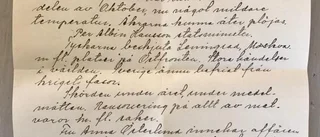 delen av Oktober, nu något mildare
temperatur. Åkrarna kunna åter plöjas.
Per Albin Hansson statsminister.
Tyskarna beskjuta Leningrad, Moskva
m. fl. platser på Ostfronten. Stora händelser
i världen. Sverige ännu befriat från
krigets fasor.
Skörden under året under medel-
måttan. Ransonering på allt av mat-
varor m. fl. saker.
Fru Anna Österlund innehar affären